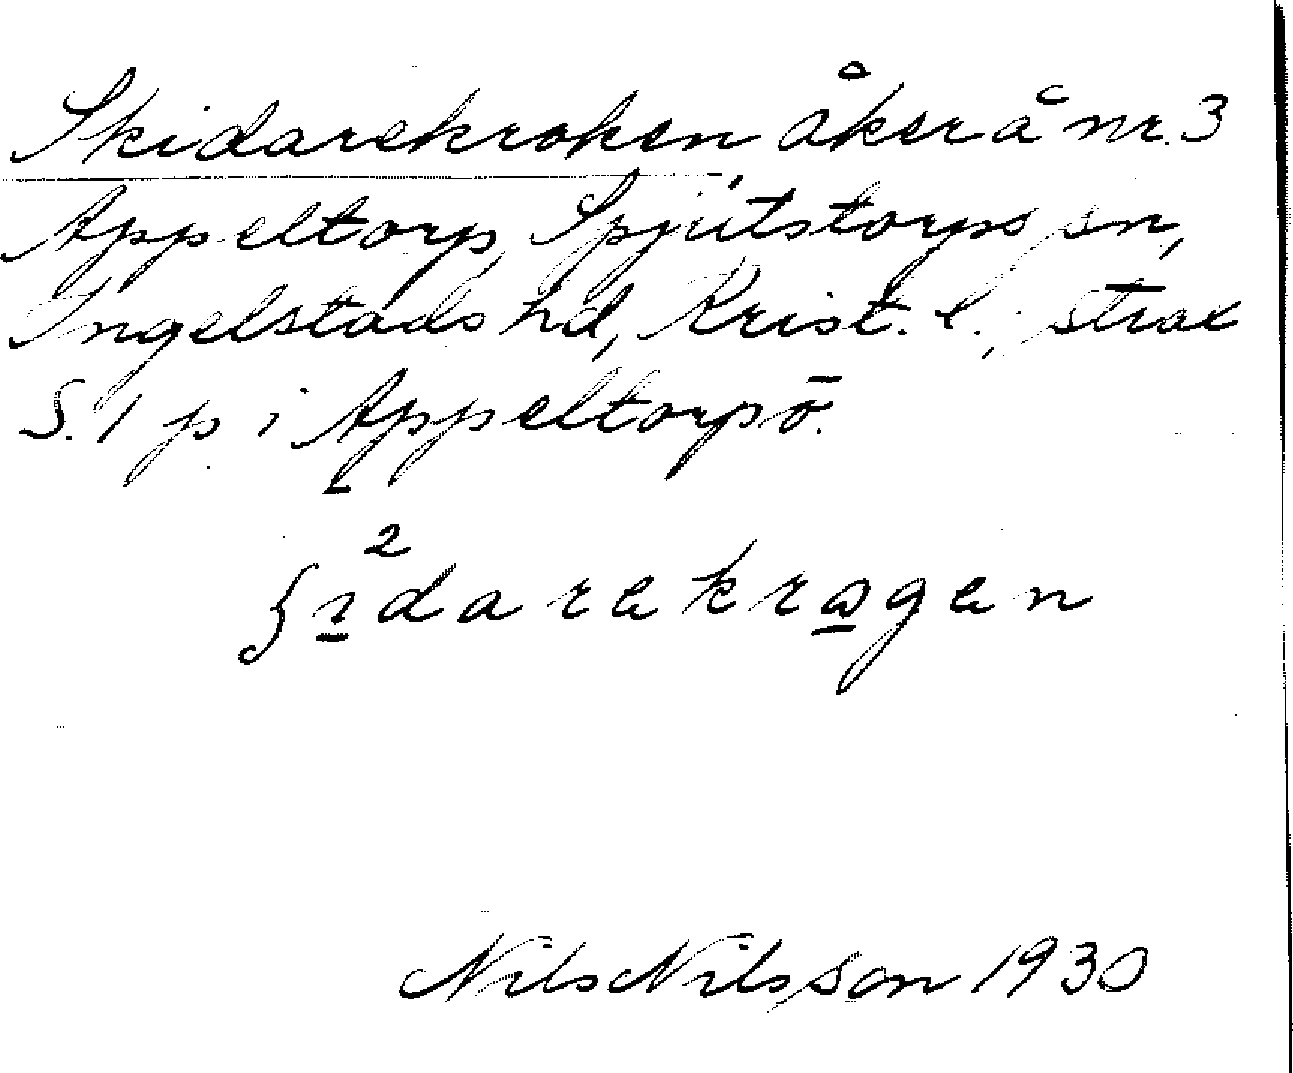 Skidarekroken åker å nr. 3
Appeltorp, Spjutstorps sn,
Ingelstads hd, Krist. l., strax
S. 1 p i Appeltorpō.
2
ʃɪ̱darekrɷ̱gen
Nils Nilsson 1930